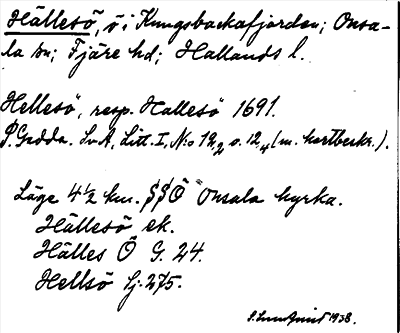 Hällesö, ö i Kungsbackafjorden; Onsa-
la sn; Fjäre hd; Hallands l.
Hellesö, resp. Hallesö 1691.
P. Gedda. SvA, Litt. I, N:o 19,2 o. 12,4 (m. kartbeskr.).
Läge 4½ km. SSÖ Onsala kyrka.
Hällesö ek.
Hälles Ö G. 24.
Hellsö Sj. 275.
S. Lundquist 1938.